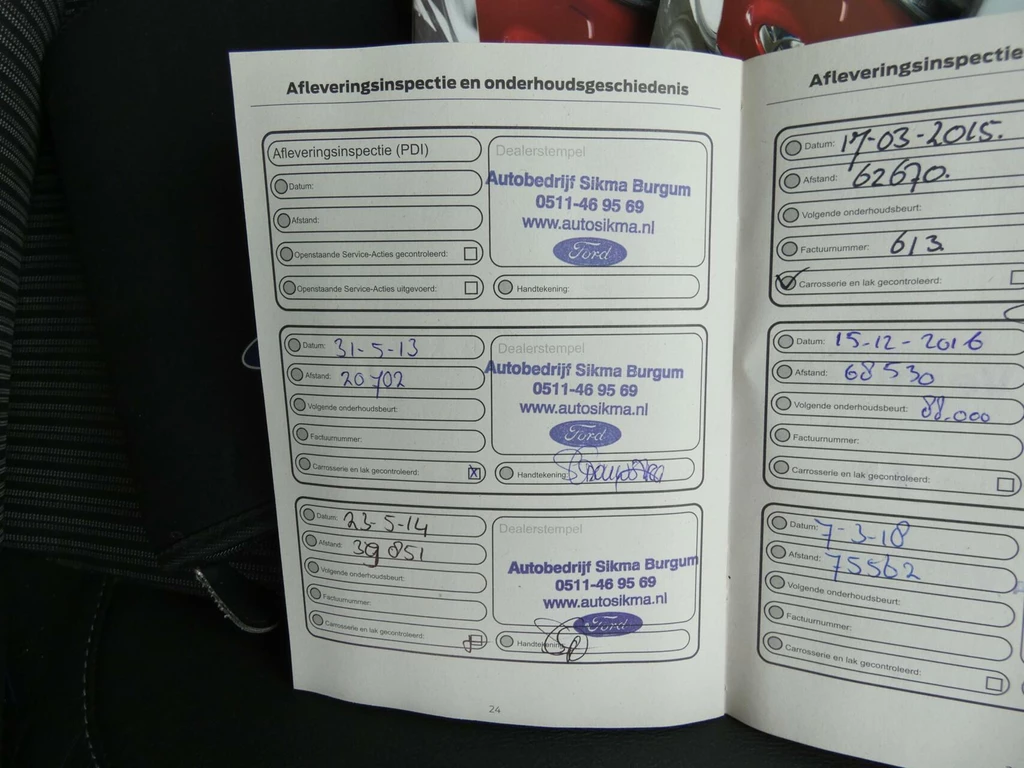 Afleveringsinspectie en onderhoudsgeschiedenis
Afleveringsinspectie (PDI)
Datum:
Afstand:
Openstaande Service-Acties gecontroleerd:
Openstaande Service-Acties uitgevoerd:
Dealerstempel
Autobedrijf Sikma Burgum
0511-46 95 69
www.autosikma.nl
Ford
Handtekening:
Datum: 31-5-13
Afstand: 20702
Volgende onderhoudsbeurt:
Factuurnummer:
Carrosserie en lak gecontroleerd:
Dealerstempel
Autobedrijf Sikma Burgum
0511-46 95 69
www.autosikma.nl
Ford
Handtekening:
Datum: 23-5-14
Afstand: 39851
Volgende onderhoudsbeurt:
Factuurnummer:
Carrosserie en lak gecontroleerd:
Dealerstempel
Autobedrijf Sikma Burgum
0511-46 95 69
www.autosikma.nl
Ford
Handtekening:
24
Afleveringsinspectie
Datum: 17-03-2015.
Afstand: 62670.
Volgende onderhoudsbeurt:
Factuurnummer: 613
Carrosserie en lak gecontroleerd:
Datum: 15-12-2016
Afstand: 68530
Volgende onderhoudsbeurt: 88.000
Factuurnummer:
Carrosserie en lak gecontroleerd:
Datum: 7-3-18
Afstand: 75562
Volgende onderhoudsbeurt:
Factuurnummer:
Carrosserie en lak gecontroleerd: